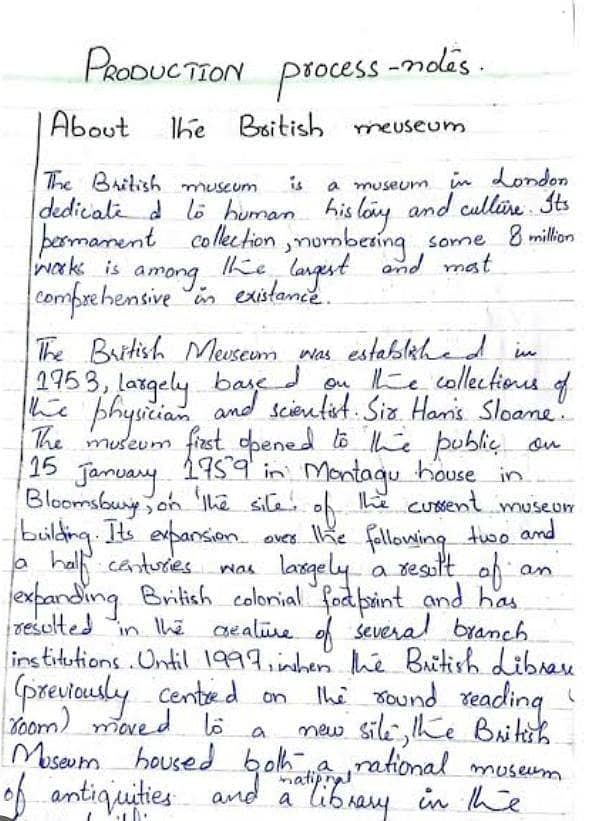 PRODUCTION process-notes.
About the British meuseum
The British museum is a museum in London
dedicate d to human history and culture. Its
permanent collection, numbering some 8 million
works is among the largest and most
comprehensive in existance.
The British Meuseum was established in
1953, largely based on the collections of
the physician and scientist. Sir Hans Sloane.
The museum first opened to the public on
15 January 1959 in Montagu house in
Bloomsbury, on the site of the current museum
building. Its expansion over the following two and
a half centuries was largely a result of an
expanding British colonial footprint and has
resulted in the creature of several branch
institutions. Until 1997, when the British Library
(previously centred on the round reading
room) moved to a new site, the British
Museum housed both a national museum
of antiquities and a national library in the